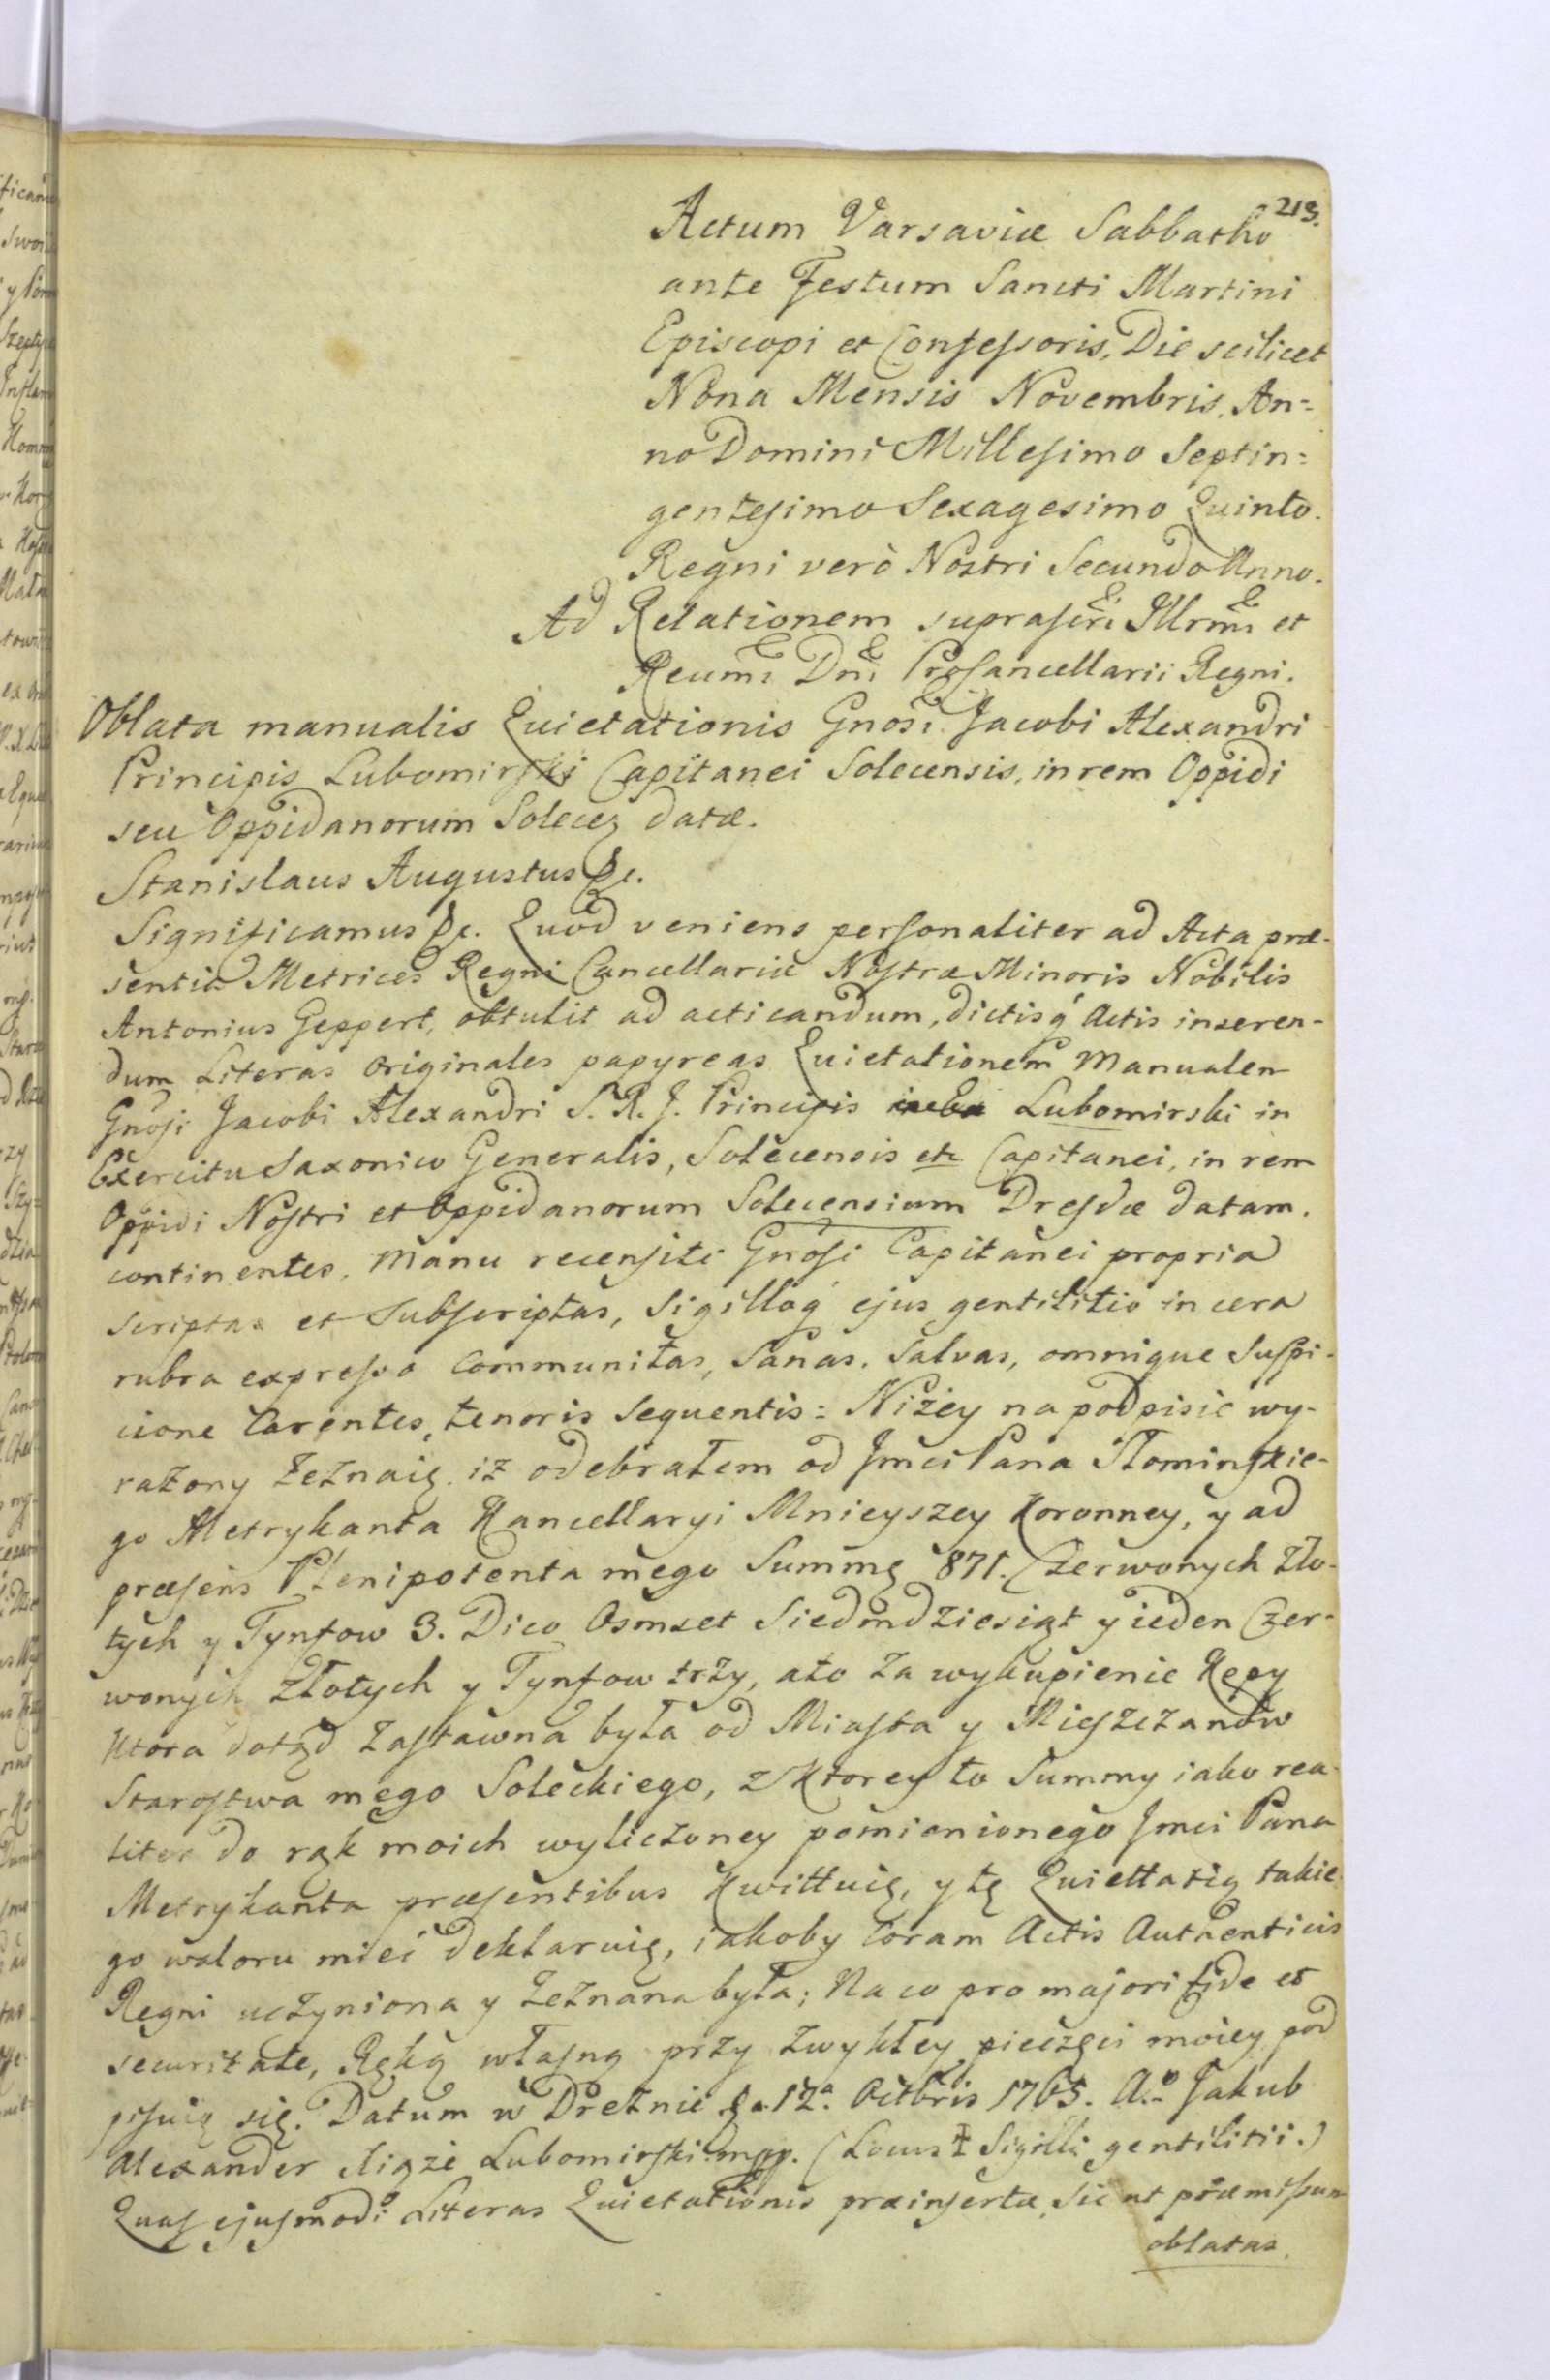 213.
Actum Varsaviæ Sabbatho
ante Festum Sancti Martini
Episcopi et Confessoris, Die scilicet
Nona Mensis Novembris, An=
no Domini Millesimo Septin=
gentesimo Sexagesimo Quinto.
Regni verò Nostri Secundo Anno.
Ad Relationem suprascri Illrmi et
Reumi Dni ProCancellarii Regni.
Oblata manualis Quietationis Gnosi Jacobi Alexandri
Principis Lubomirski Capitanei Solecensis, in rem Oppidi
seu Oppidanorum Solecz datæ.
Stanislaus Augustus &c.
Significamus &c. Quod veniens personaliter ad Acta præ-
sentia Metrices Regni Cancellariæ Nostræ Minoris Nobilis
Antonius Geppert, obtulit ad acticandum, dictisq́ Actis inseren-
dum Literas originales papyreas Quietationem Manualem
Gnosi Jacobi Alexandri S. R. J. Principis Lubomirski in
Exercitu Saxonico Generalis, Solecensis etc Capitanei, in rem
Oppidi Nostri et Oppidanorum Solecensium Dresdæ datam.
continentes, Manu recensiti Gnosi Capitanei propria
scriptas et Subscriptas, Sigilloq́ ejus gentilitio in cera
rubra expresso Communitas, Sanas, Salvas, omnique Suspi-
cione Carentes, tenoris Sequentis: Niżey na podpisie wy-
rażony zeznaię, iż odebrałem od Jmci Pana Słominskie-
go Metrykanta Kancellaryi Mnieyszey Koronney, y ad
præsens Plenipotenta mego Summę 871. Czerwonych Zło-
tych y Tynfow 3. Dico Osmset Siedmdziesiąt y ieden Czer-
wonych Złotych y Tynfow trzy, a to za wykupienie Kępy
Ktora dotąd zastawna była od Miasta y Mieszczanow
Starostwa mego Soleckiego, z Ktorey to Summy iako rea-
liter do rąk moich wyliczoney pomienionego Jmci Pana
Metrykanta præsentibus Kwittuię, y tę Quiettatię takie
go waloru mieć deklaruię, iakoby Coram Actis Authenticis
Regni uczyniona y zeznana była; Na co pro majori fide et
securitate, Ręką własną przy zwykłey pieczęci moiey pod
pisuię się. Datum w Dreznie d. 12ª. Octbris 1765. Aº. Jakub
Alexander Xiąże Lubomirski mpp. (Locus Sigilli gentilitii.)
Quas ejusmodi Literas Quietationis præinsertæ, Sic ut præmissum
oblatas